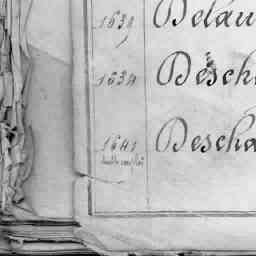 1639 Delau
1634 Desch
1641 Descha